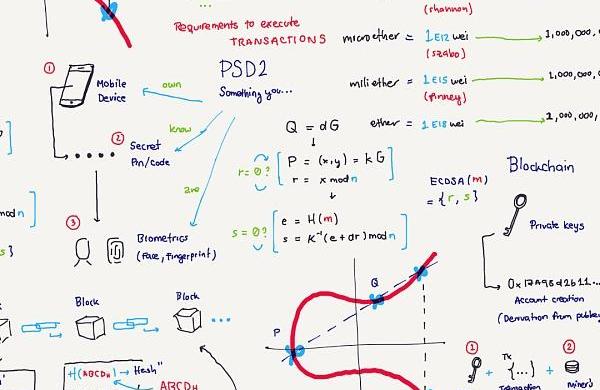 (shannon)
Requirements to execute
TRANSACTIONS
microether = 1E12 wei → 1,000,000,
(szabo)
PSD2
Something you...
1
Mobile
Device
own
milliether = 1E15 wei → 1,000,0
(finney)
ether = 1E18 wei → 1,000,
know
2
Secret
Pin/Code
are
Q = dG
r = 0?
P = (x,y) = kG
r = x mod n
ECDSA(m)
= {r, s}
s = 0?
e = H(m)
s = K⁻¹(e + dr) mod n
mod n
s}
3
Biometrics
(Face, Fingerprint)
Blockchain
Private keys
Account creation
(Derivation from
Block
Block
P
Q
H(ABCDH) → Hash"
ABCDH
1
+
Tx
{...}
+
2